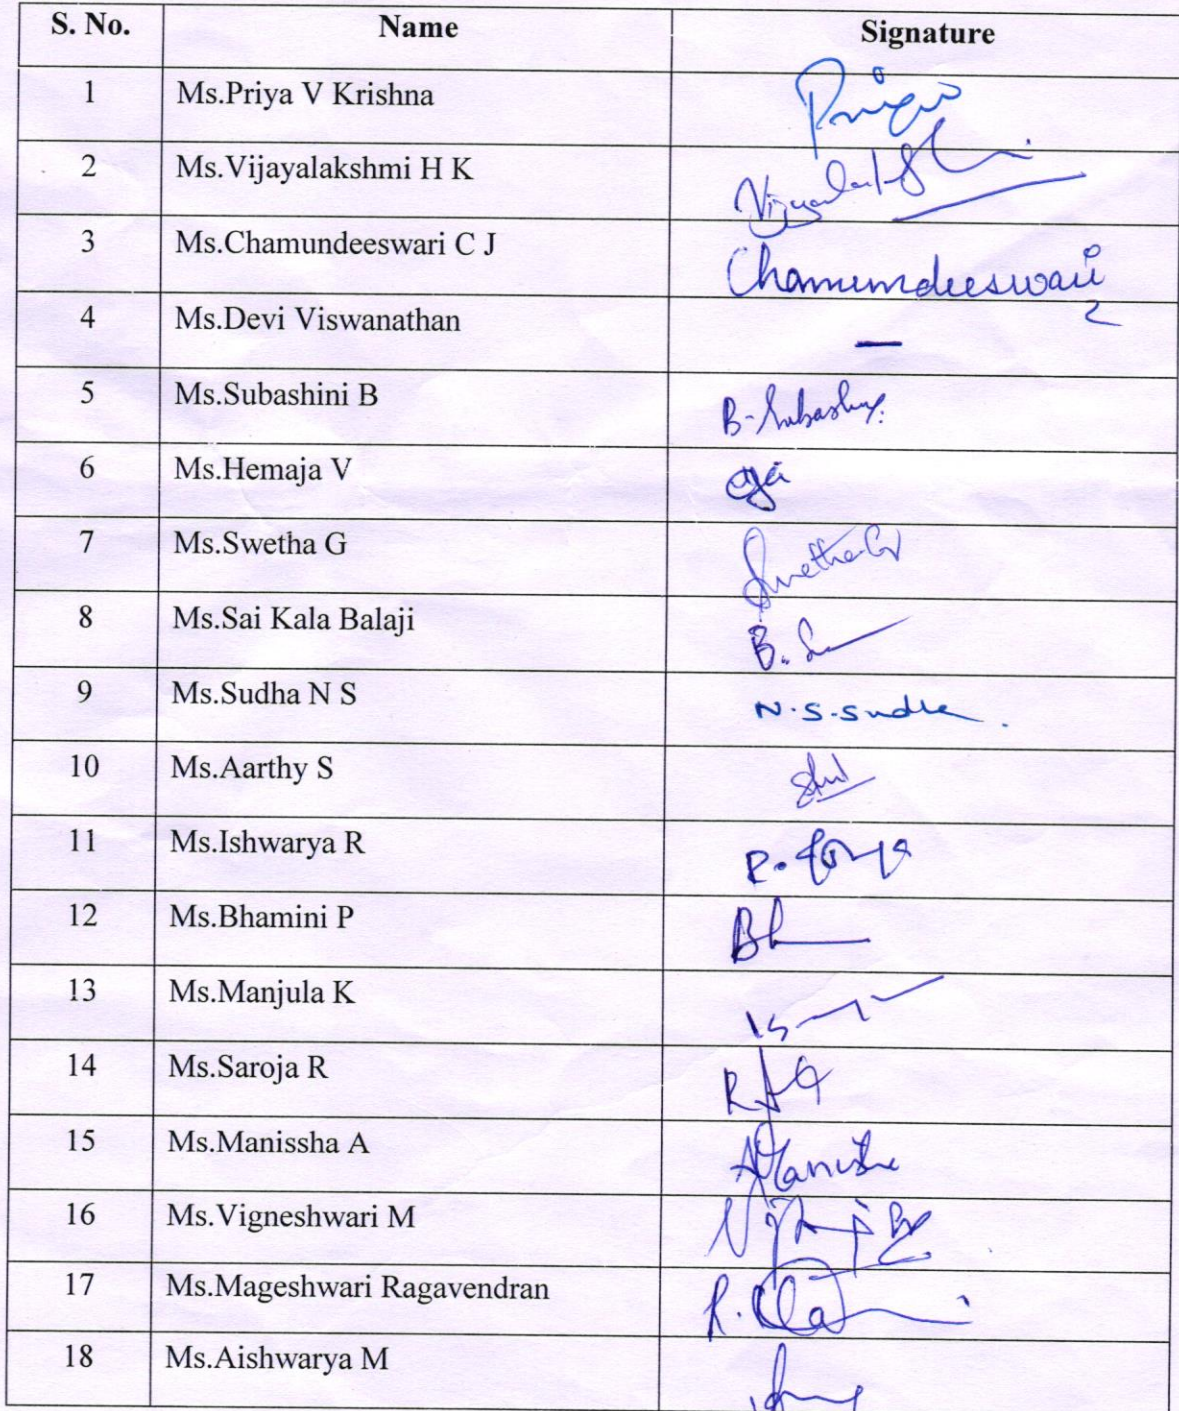 S. No. Name Signature
1 Ms.Priya V Krishna Priya
2 Ms.Vijayalakshmi H K
3 Ms.Chamundeeswari C J Chamundeeswari
4 Ms.Devi Viswanathan —
5 Ms.Subashini B B-Subashini
6 Ms.Hemaja V
7 Ms.Swetha G Swetha G
8 Ms.Sai Kala Balaji B.
9 Ms.Sudha N S N.S.Sudha.
10 Ms.Aarthy S
11 Ms.Ishwarya R R.
12 Ms.Bhamini P
13 Ms.Manjula K
14 Ms.Saroja R
15 Ms.Manissha A
16 Ms.Vigneshwari M
17 Ms.Mageshwari Ragavendran R.
18 Ms.Aishwarya M